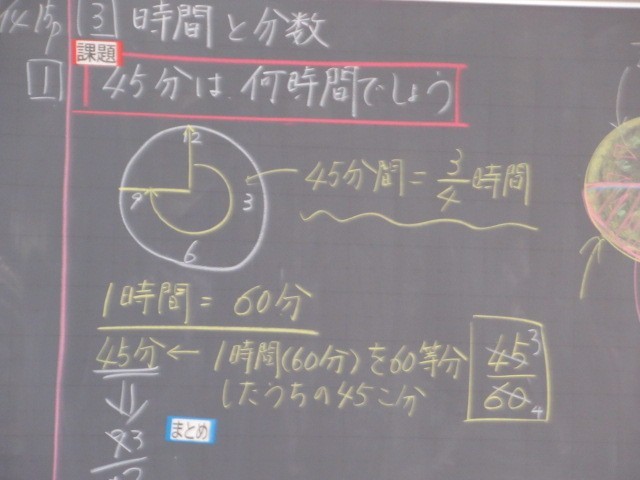 ③ 時間と分数
課題
1 45分は、何時間でしょう
12
9 3
6
45分間 = 3/4 時間
1時間 = 60分
45分 ← 1時間(60分)を60等分
したうちの45こ分
45/60 3 4
まとめ